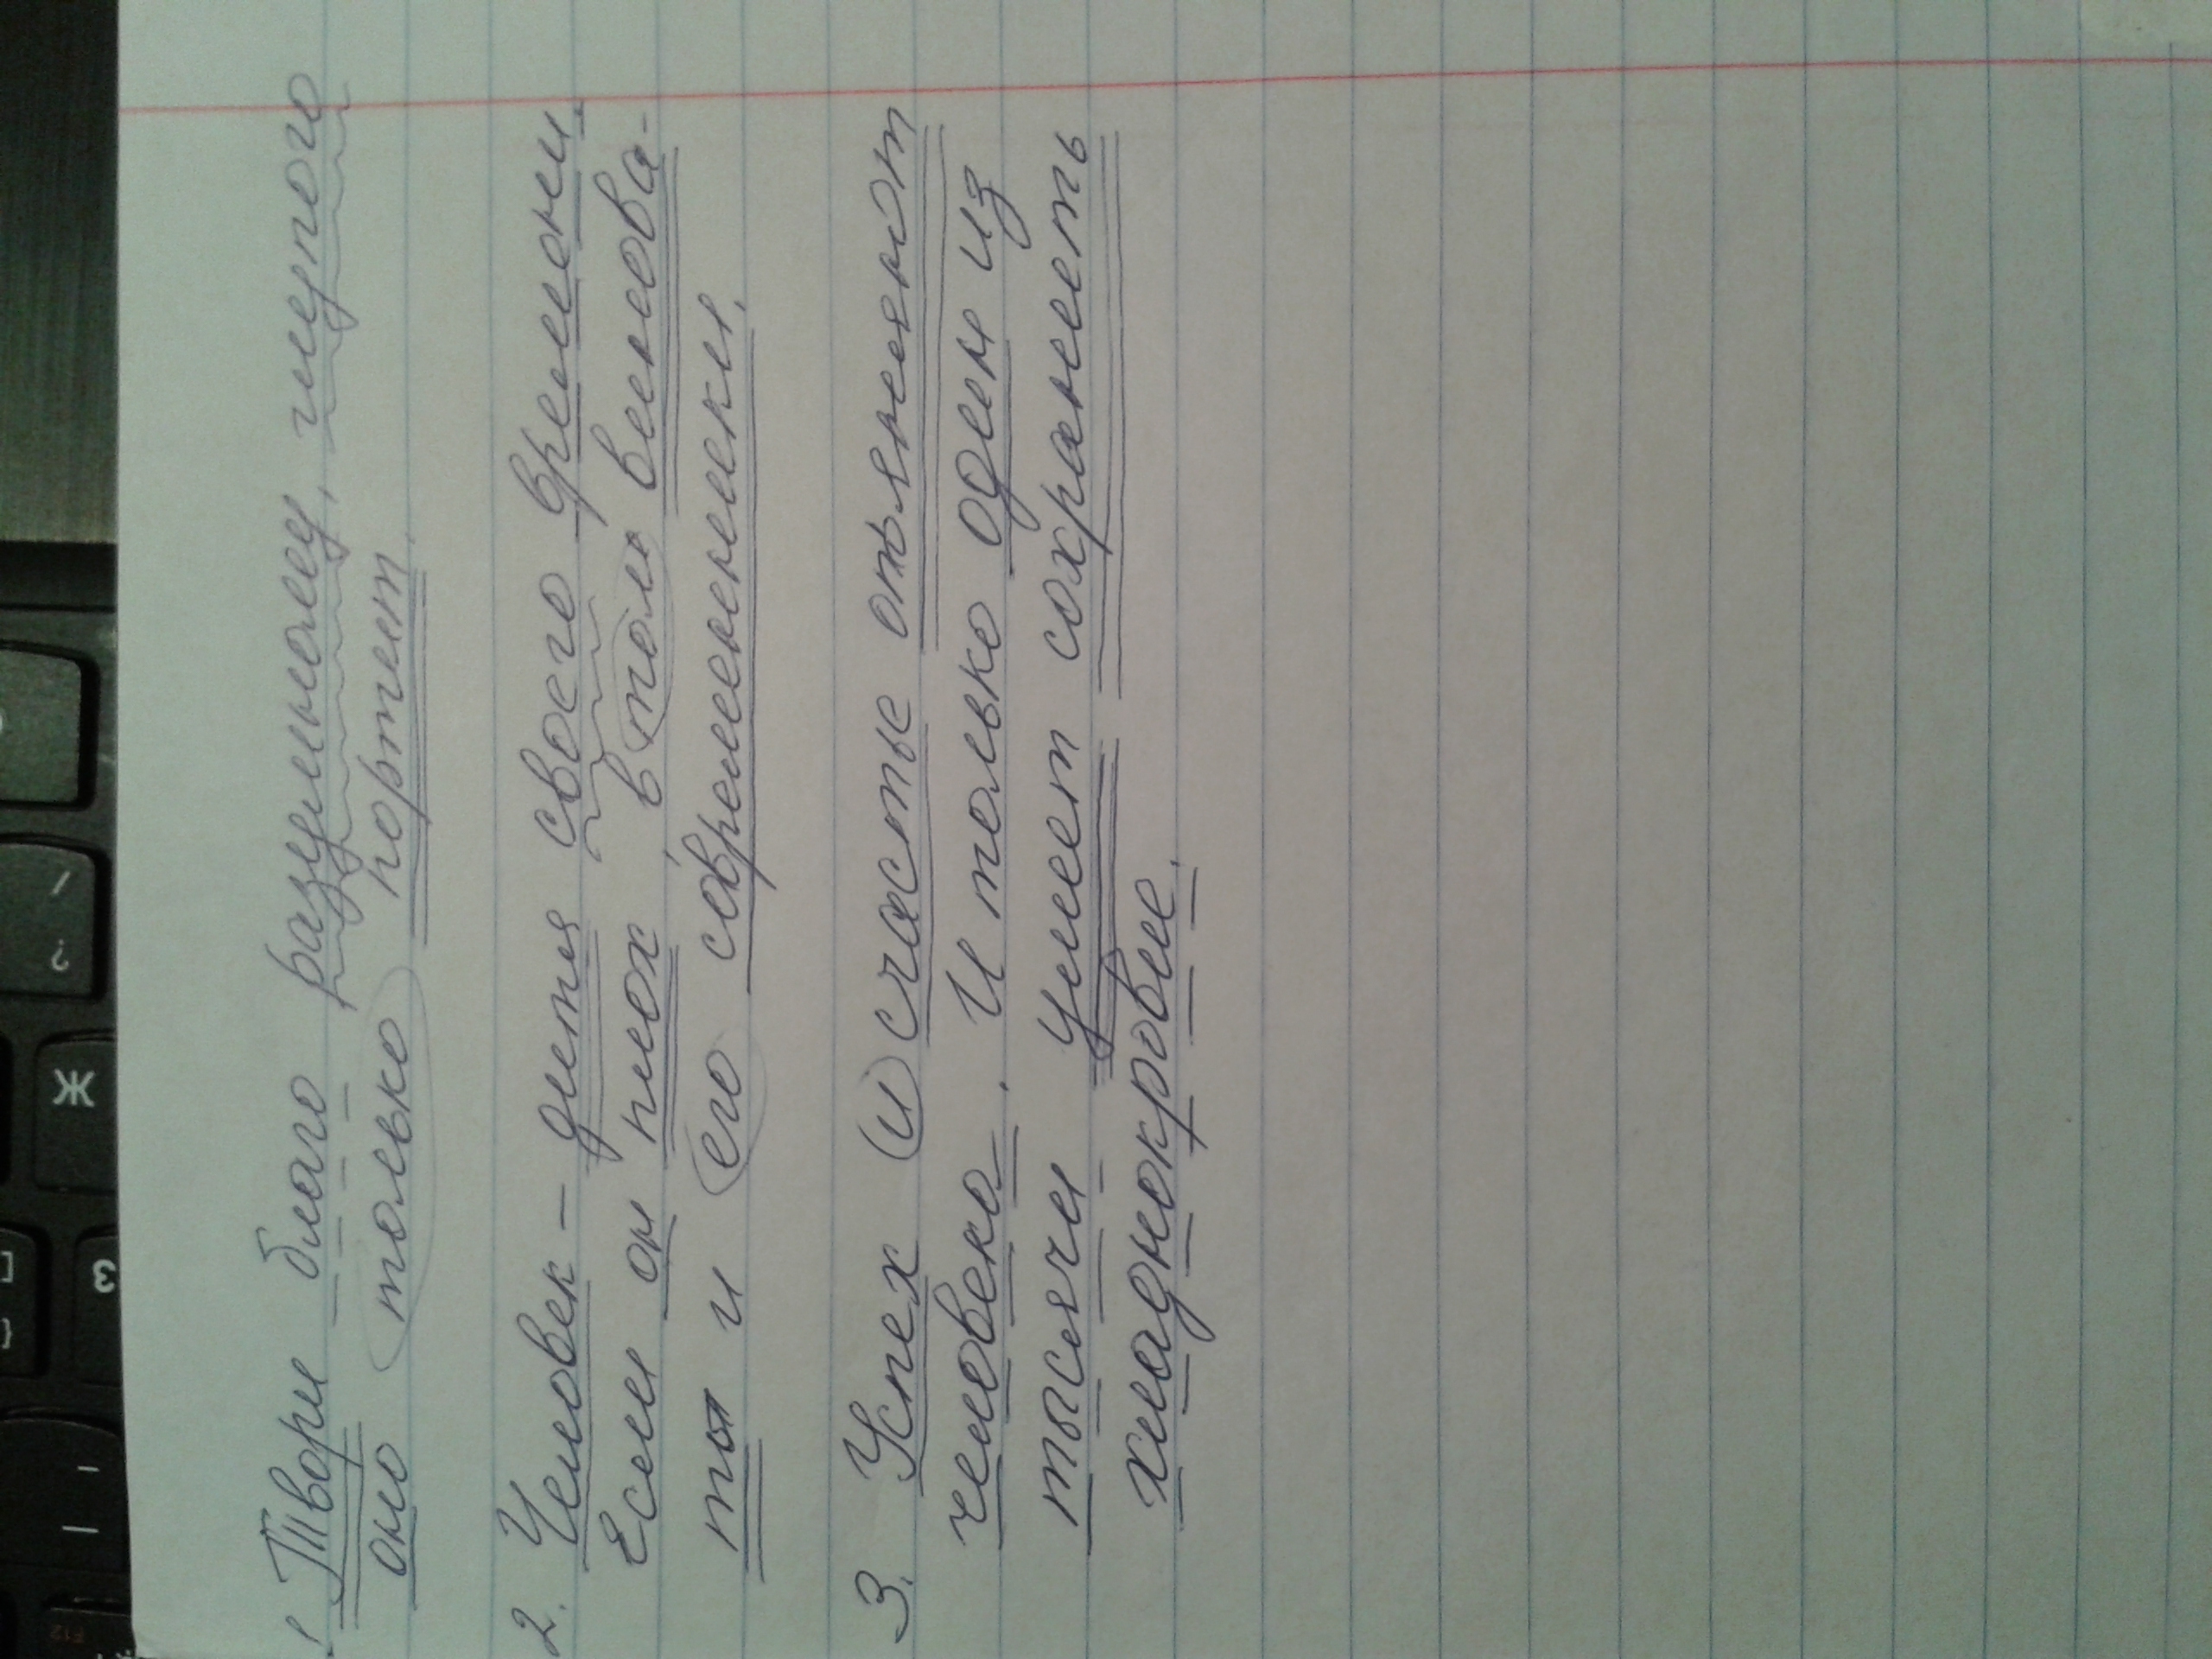 1. Твори благо разумному, глупого
оно только портит.
2. Человек – дитя своего времени.
Если он плох, в том винова-
ты и его современники.
3. Успех и счастье опьяняют
человека. И только один из
тысячи умеет сохранить
хладнокровие.
Ж
?
/
З
[
{
F12